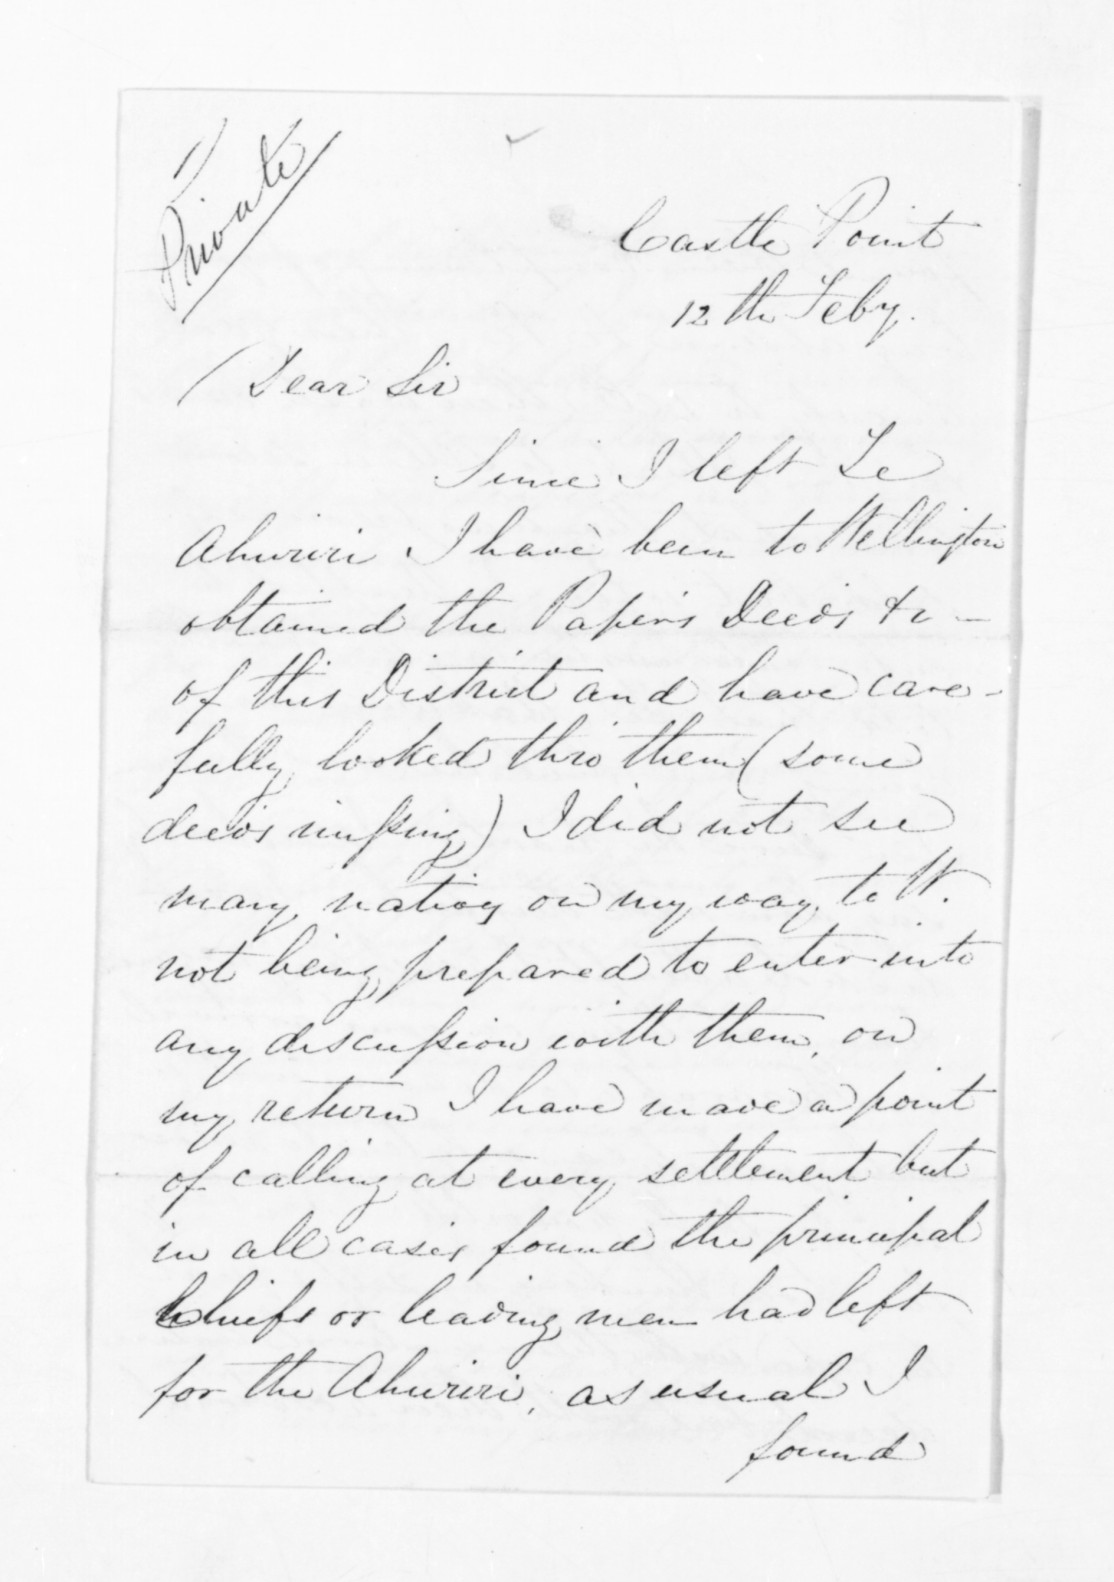 Private
Castle Point
12th Feby.
Dear Sir
Since I left Te
Ahuriri I have been to Wellington
obtained the Papers Deeds &c —
of this District and have care-
fully looked thro them (some
deeds missing) I did not see
many natives on my way to W.
not being prepared to enter into
any discussion with them, on
my return I have made a point
of calling at every settlement but
in all cases found the principal
Chiefs or leading men had left
for the Ahuriri, as usual I
found